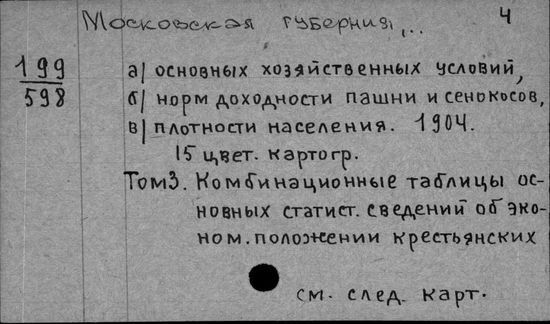 Московская губерния,... 4
199
598
а) основных хозяйственных условий,
б) норм доходности пашни и сенокосов,
в) плотности населения. 1904.
15 цвет. картогр.
Том 3. Комбинационные таблицы ос-
новных статист. сведений об эко-
ном. положении крестьянских
см. след. карт.